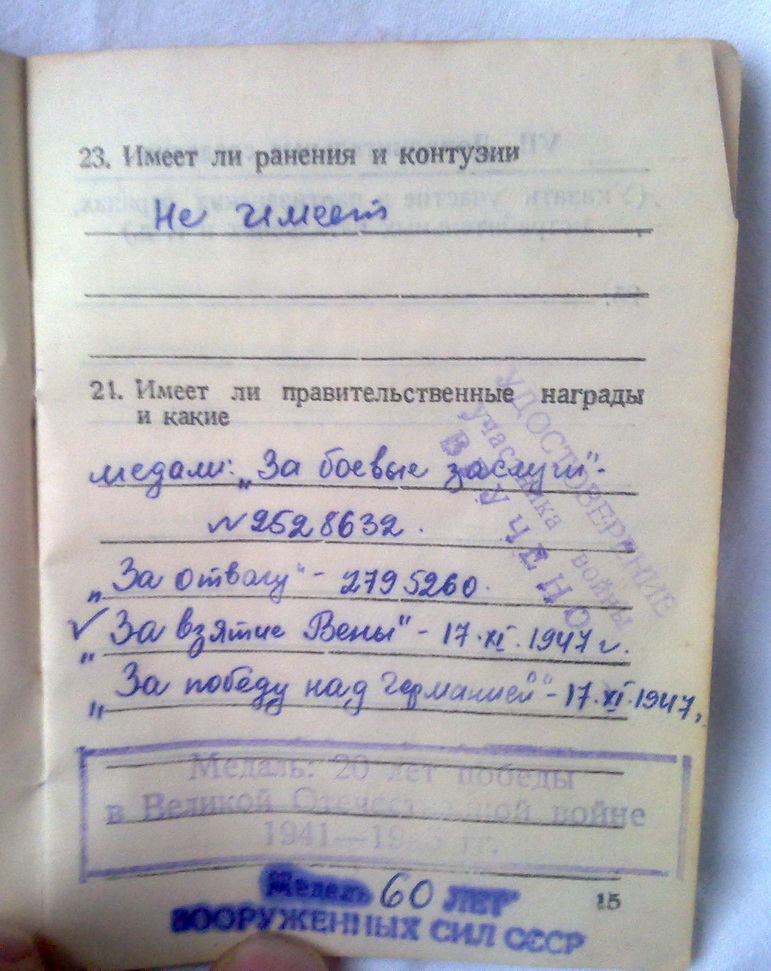 23. Имеет ли ранения и контузии
Не имеет
21. Имеет ли правительственные награды
и какие
медали: „За боевые заслуги"-
№2528632.
„За отвагу" - 2795260.
✓ „За взятие Вены" - 17.XI.1947 г.
„За победу над Германией" - 17.XI.1947,
УДОСТОВЕРЕНИЕ
участника войны
ВРУЧЕНО
Медаль: 20 лет победы
в Великой Отечественной войне
1941—1945 гг.
Медаль 60 ЛЕТ
ВООРУЖЕННЫХ СИЛ СССР
15